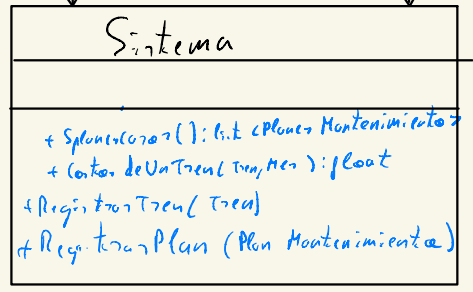 Sistema
+ 5planesCaros(): list <Planes Mantenimientos>
+ Costos de Un Tren (Tren, Mes): float
+ Registrar Tren (Tren)
+ Registrar Plan (Plan Mantenimiento)